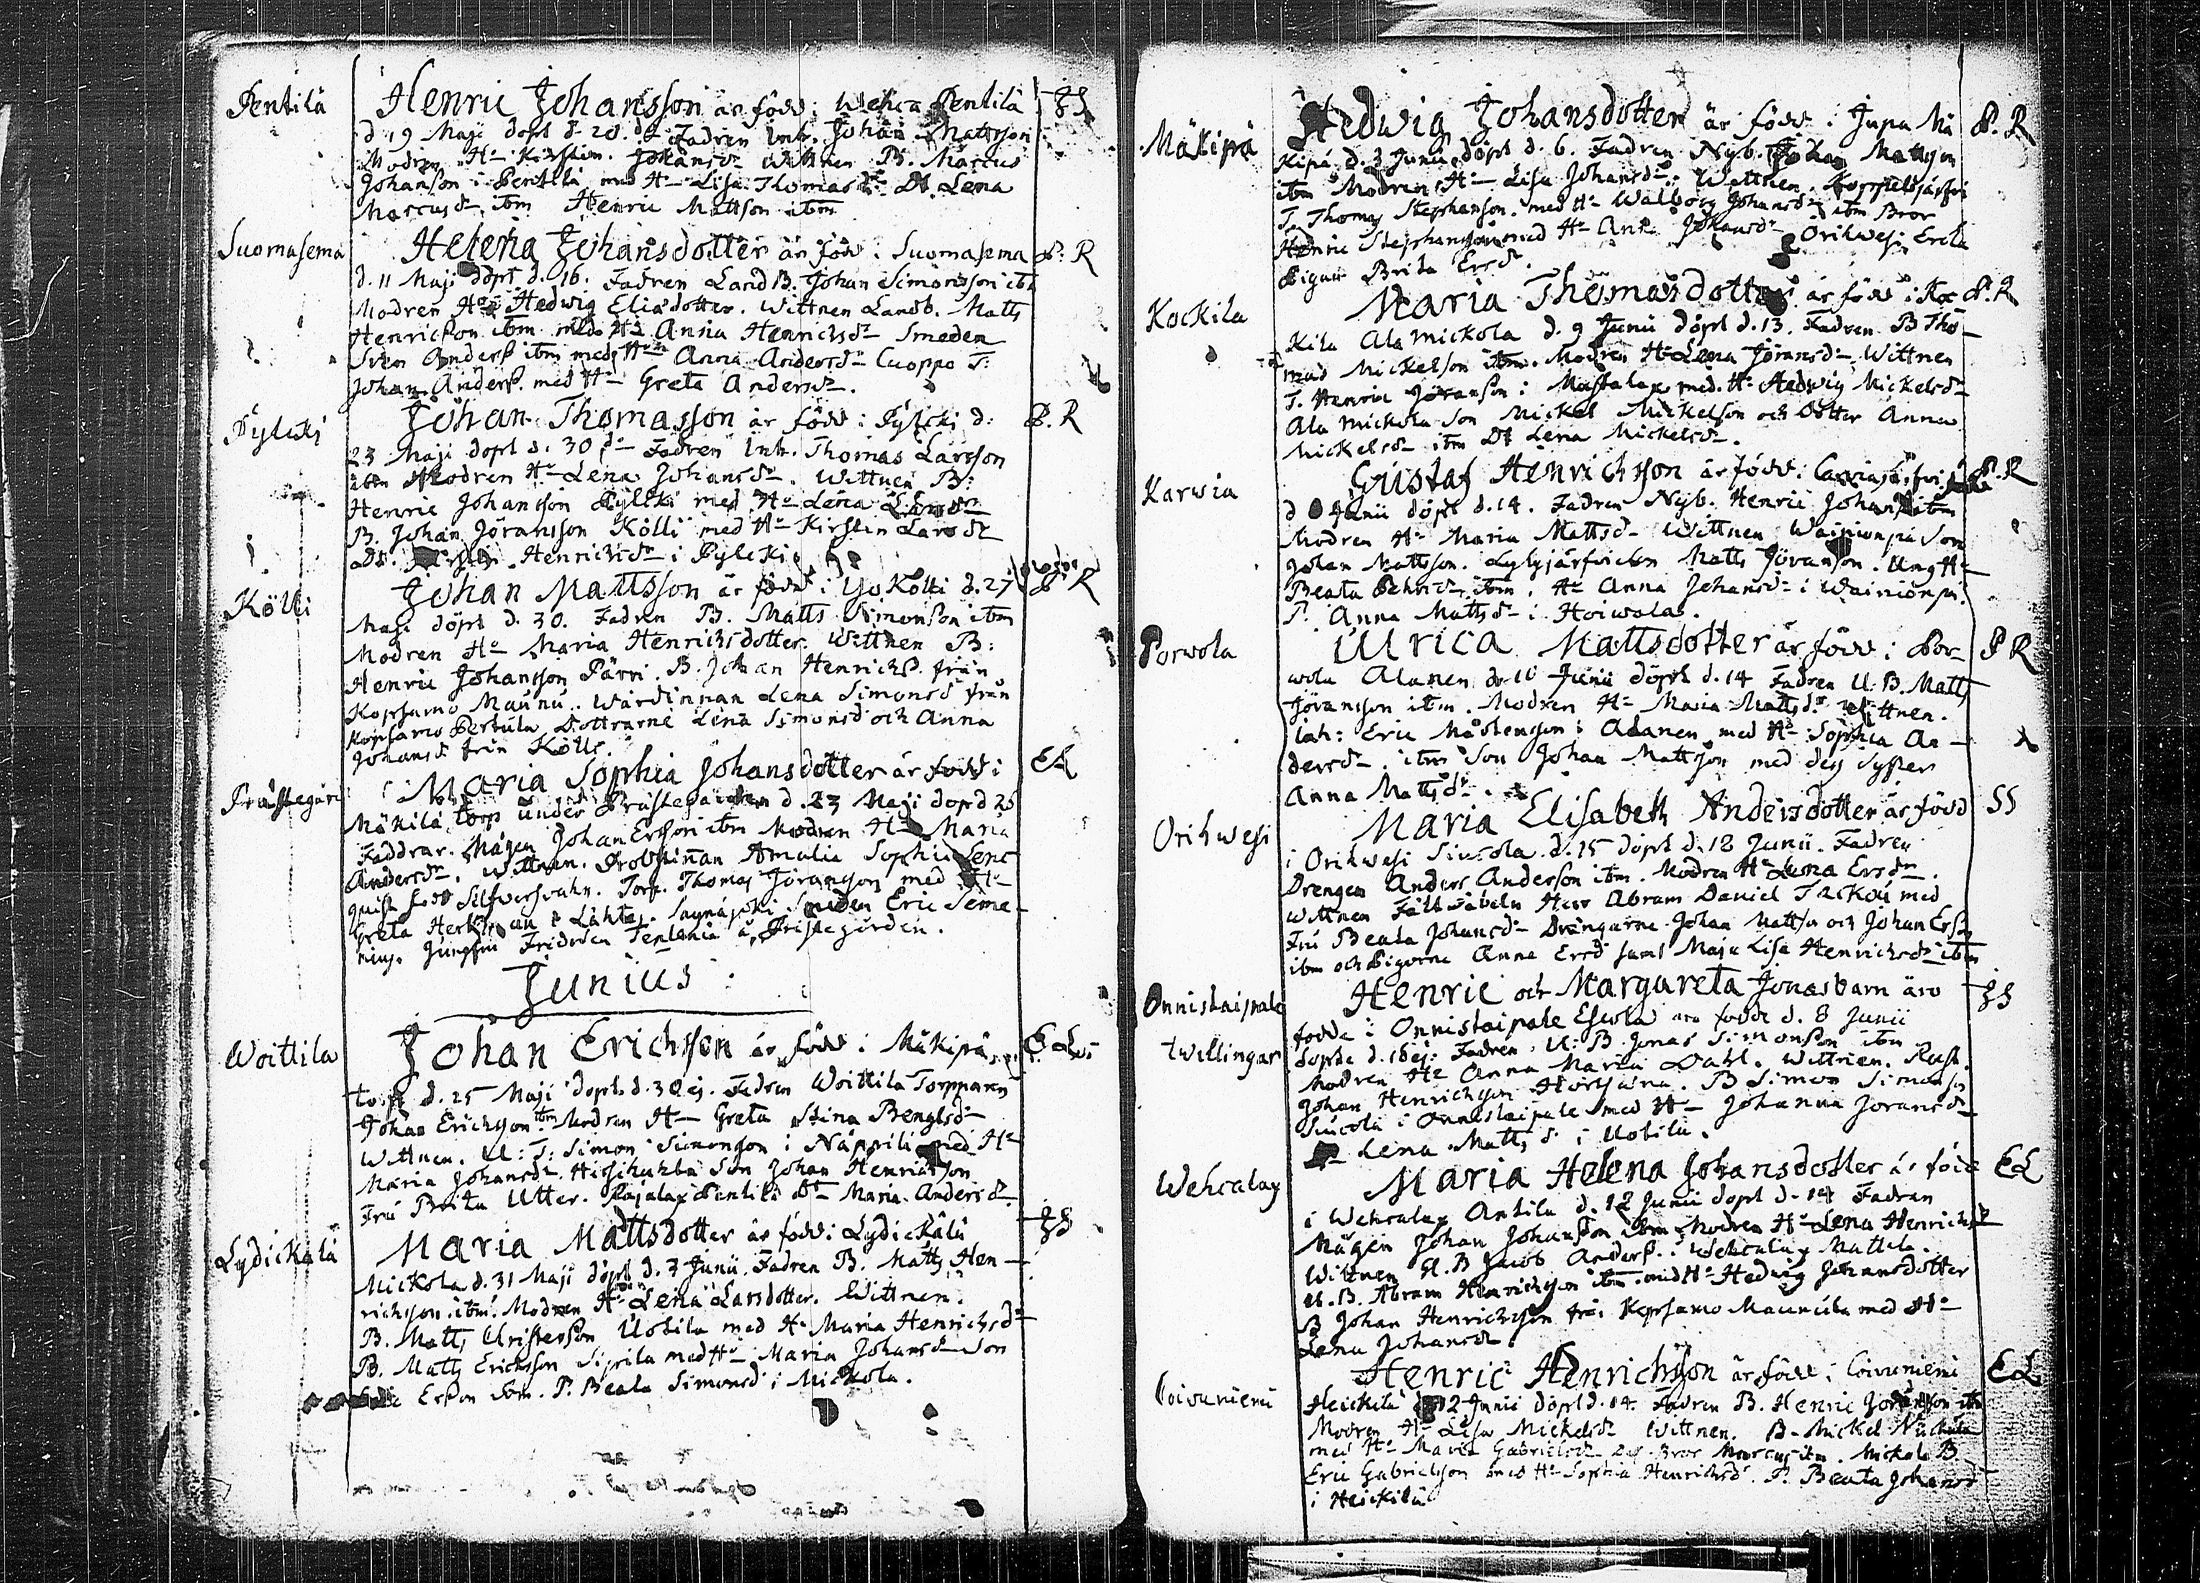 Pentilä
Henric Johansson är född i Wehca Pentilä
d. 19 Maji döpt d. 20. do Fadren Inh. Johan Mattsson
Modren Hu Kirstin Johansdr Wittnen B. Marcus
Johanson i Pentilä med Hu Lisa Thomasdr Dr Lena
Marcusdr ibm Henric Mattson ibm
Suomasema
Helena Johansdotter är född i Suomasema B. R
d. 11 Maji döpt d. 16. Fadren Land B. Johan Simonsson ibm
Modren Hu Hedwig Eliædotter. Wittnen Landb. Matts
Henricson ibm med Hu Anna Henricsdr Smeden
Sven Anderss. ibm med Hu Anna Andersdr Cuoppo T:
Johan Anderss. med Hu Greta Andersdr.
Pyleki
Johan Thomasson är född i Pyleki d: B. R
23 Maji döpt d. 30 do Fadren Inh. Thomas Larsson
ibm Modren Hu Lena Johansdr. Wittnen B:
Henric Johansson Pyleki med Hu Lena Larsdr
B. Johan Jöransson Kölli med Hu Kirstin Larsdr
Dr. Henricsdr i Pyleki
Kölli
Johan Mattsson är född i Yo Kölli d. 27 B R
Maji döpt d. 30. Fadren B. Matts Simonson ibm
Modren Hu Maria Henricsdotter. Wittnen B:
Henric Johansson Pärri. B. Johan Henrichs. från
Kopsamo Maunu. Wärdinnan Lena Simonsd från
Kopsamo Pertula Dottrarne Lena Simonsd och Anna
Johansd från Kölli.
Prästegård
Maria Sophia Johansdotter är född i EL
Mäkilä torp under Prästegården d. 23 Maji döpd 25
Faddrar. Mågen Johan Ersson ibm Modren Hu Maria
Andersdr. Wittnen. Probstinnan Amalia Sophia Lenc
quist född Silfversvahn. Torp. Thomas Jöransson med Hu
Greta Lähtes. Saynäjoki Smeden Eric Seme
Jungfru Tenlenia i Prästegården.
Junius
Woittila
Johan Ericsson är född i Mäkipä E. L.
torp d. 25 Maji döpt d. 30 ej. Fadren Woittila Torpparen
Johan Ericsson ibm Modren Hu Greta Stina Bengtsdr
Wittnen. U: T: Simon Simonson i Näppilä med Hu
Maria Johansdr Son Johan Henricsson
Fru Brita Utter. Pajalax Pentilä Dr Maria Andersdr
Lydickälä
Maria Mattsdotter är född i Lydickälä
Mickola d. 31 Maji döpt d. 3 Junii. Fadren B. Matts Hen-
richsson ibm. Modren Hu Lena Larsdotter. Wittnen.
B. Matts Christerson Uotila med Hu Maria Henricsdr
B. Matts Ericsson Sipilä med Hu Maria Johansdr Son
Erson ibm. P. Beata Simonsd i Mickola.
Mäkipä
Hedwig Johansdotter är född i Jupa Mä B. R
kipä d. 3 Junii döpt d. 6. Fadren Nyb. Johan Mattson
ibm Modren Hu Lisa Johansdr: Wittnen. Koppelojärfvi
T. Thomas Stephanson. med Hu Walborg Johansdr ibm Bror
Henric Stephansson med Hu Anna Johansdr Orihwesi Ercla
Pigan Brita Ersdr.
Kockila
Maria Thomasdotter är född i Koc B. R
kila Ala Mickola d. 9 Junii döpt d. 13. Fadren B Tho-
mas Mickelson ibm. Modren Hu Lena Jöransdr Wittnen
T. Henric Jöranson i Mustalax med Hu Hedwig Mickelsdr
Ala Mickola Son Mickel Mickelson och Dotter Anna
Mickelsdr ibm Dr Lena Mickelsdr.
Karwia
Gustaf Henrichsson är född: B. R
d Junii döpt d. 14. Fadren Nyb. Henric Johans. ibm
Modren Hu Maria Mattsdr Wittnen Wainionpä Son
Johan Mattsson. Matts Jöranson. Ung Hu
Beata ibm. Hu Anna Johansdr i Wainionpä.
P. Anna Mattsdr i Hoiwola.
Porwola
Ulrica Mattsdotter är född i Por- B R
wola Alanen d. 10 Junii döpt d. 14 Fadren U. B. Matts
Jöransson ibm. Modren Hu Maria Mattsdr Wittnen.
Eric Mårtensson i Alanen med Hu Sophia An-
dersdr ibm Son Johan Mattsson med dess Syster
Anna Mattsdr.
Orihwesi
Maria Elisabeth Andersdotter är född SS
i Orihwesi Siucola d. 15 döpt d. 18 Junii. Fadren
Drengen Anders Anderson ibm. Modren Hu Lena Ersdr.
Wittnen Fält Wäbeln Herr Abram Daniel Tackou med
Fru Beata Johansdr Drängarne Johan Mattson och Johan Erson
ibm och Pigorna Anna Ersd samt Maja Lisa Henricsdr ibm
Onnistaipale
Twillingar
Henric och Margareta Jonasbarn äro
födde i Onnistaipale Escola äro födde d. 8 Junii
döpte d. 16 ej: Fadren. U: B. Jonas Simonson ibm
Modren Hu Anna Maria Dahl. Wittnen. Rust.
Johan Henricsson. B Simon Simonson
Siucola i Onnistaipale med Hu Johanna Joransdr
Lena Mattsd: i Uotila.
Wehcalax
Maria Helena Johansdotter är född EL
i Wehcalax Antila d. 12 Junii döpt d. 14 Fadren
Mågen Johan Johansson ibm Modren Hu Lena Henricsdr
Wittnen U. B Jacob Anderss. Wehcalax Mattila.
U. B. Abram Henricsson ibm. med Hu Hedwig Johansdotter
B Johan Henricsson från Kopsamo Maunula med Hu
Lena Johansdr.
Coivuniemi
Henric Henrichsson är född i Coivuniemi EL
Heickilä d. 12 Junii döpt d. 14. Fadren B. Henric Joransson ibm
Modren Hu Lisa Mickelsdr Wittnen. B. Mickel
med Hu Maria Gabrielsdr Bror Marcus ibm. Mickola B.
Eric Gabrielsson med Hu Sophia Henricsdr. P. Beata Johansd
i Heickilä